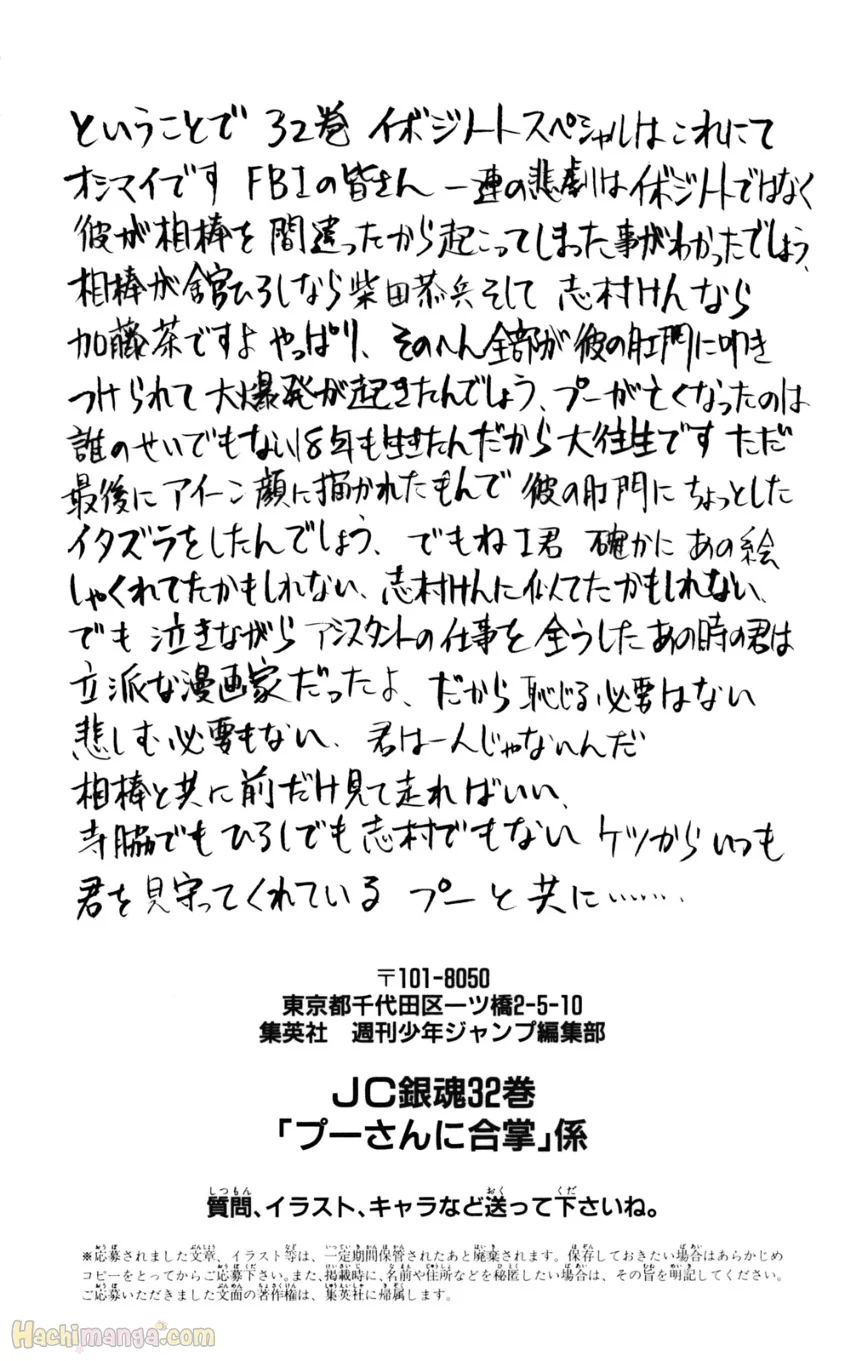 ということで 32巻 イボジノートスペシャルはこれにて
オシマイです FBIの皆さん 一連の悲劇はイボジノートではなく
彼が相棒を間違ったから起こってしまった事がわかったでしょう、
相棒が舘ひろしなら柴田恭兵そして 志村けんなら
加藤茶ですよ やっぱり、そのへん全部が彼の肛門に叩き
つけられて大爆発が起きたんでしょう、プーが亡くなったのは
誰のせいでもない18年も生きたんだから大往生です ただ
最後にアイーン顔に描かれたもんで 彼の肛門にちょっとした
イタズラをしたんでしょう、でもねI君 確かにあの絵
しゃくれてたかもしれない、志村けんに似てたかもしれない、
でも 泣きながら アシスタントの仕事を全うしたあの時の君は
立派な漫画家だったよ、だから恥じる必要はない
悲しむ必要もない、君は一人じゃないんだ
相棒と共に前だけ見て走ればいい、
寺脇でもひろしでも志村でもない ケツからいつも
君を見守ってくれている プーと共に……
〒101-8050
東京都千代田区一ツ橋2-5-10
集英社 週刊少年ジャンプ編集部
JC銀魂32巻
「プーさんに合掌」係
質問、イラスト、キャラなど送って下さいね。
※応募されました文章、イラスト等は、一定期間保管されたあと廃棄されます。保存しておきたい場合はあらかじめ
コピーをとってからご応募下さい。また、掲載時に、名前や住所などを秘匿したい場合は、その旨を明記してください。
ご応募いただきました文面の著作権は、集英社に帰属します。
Hachimanga.com